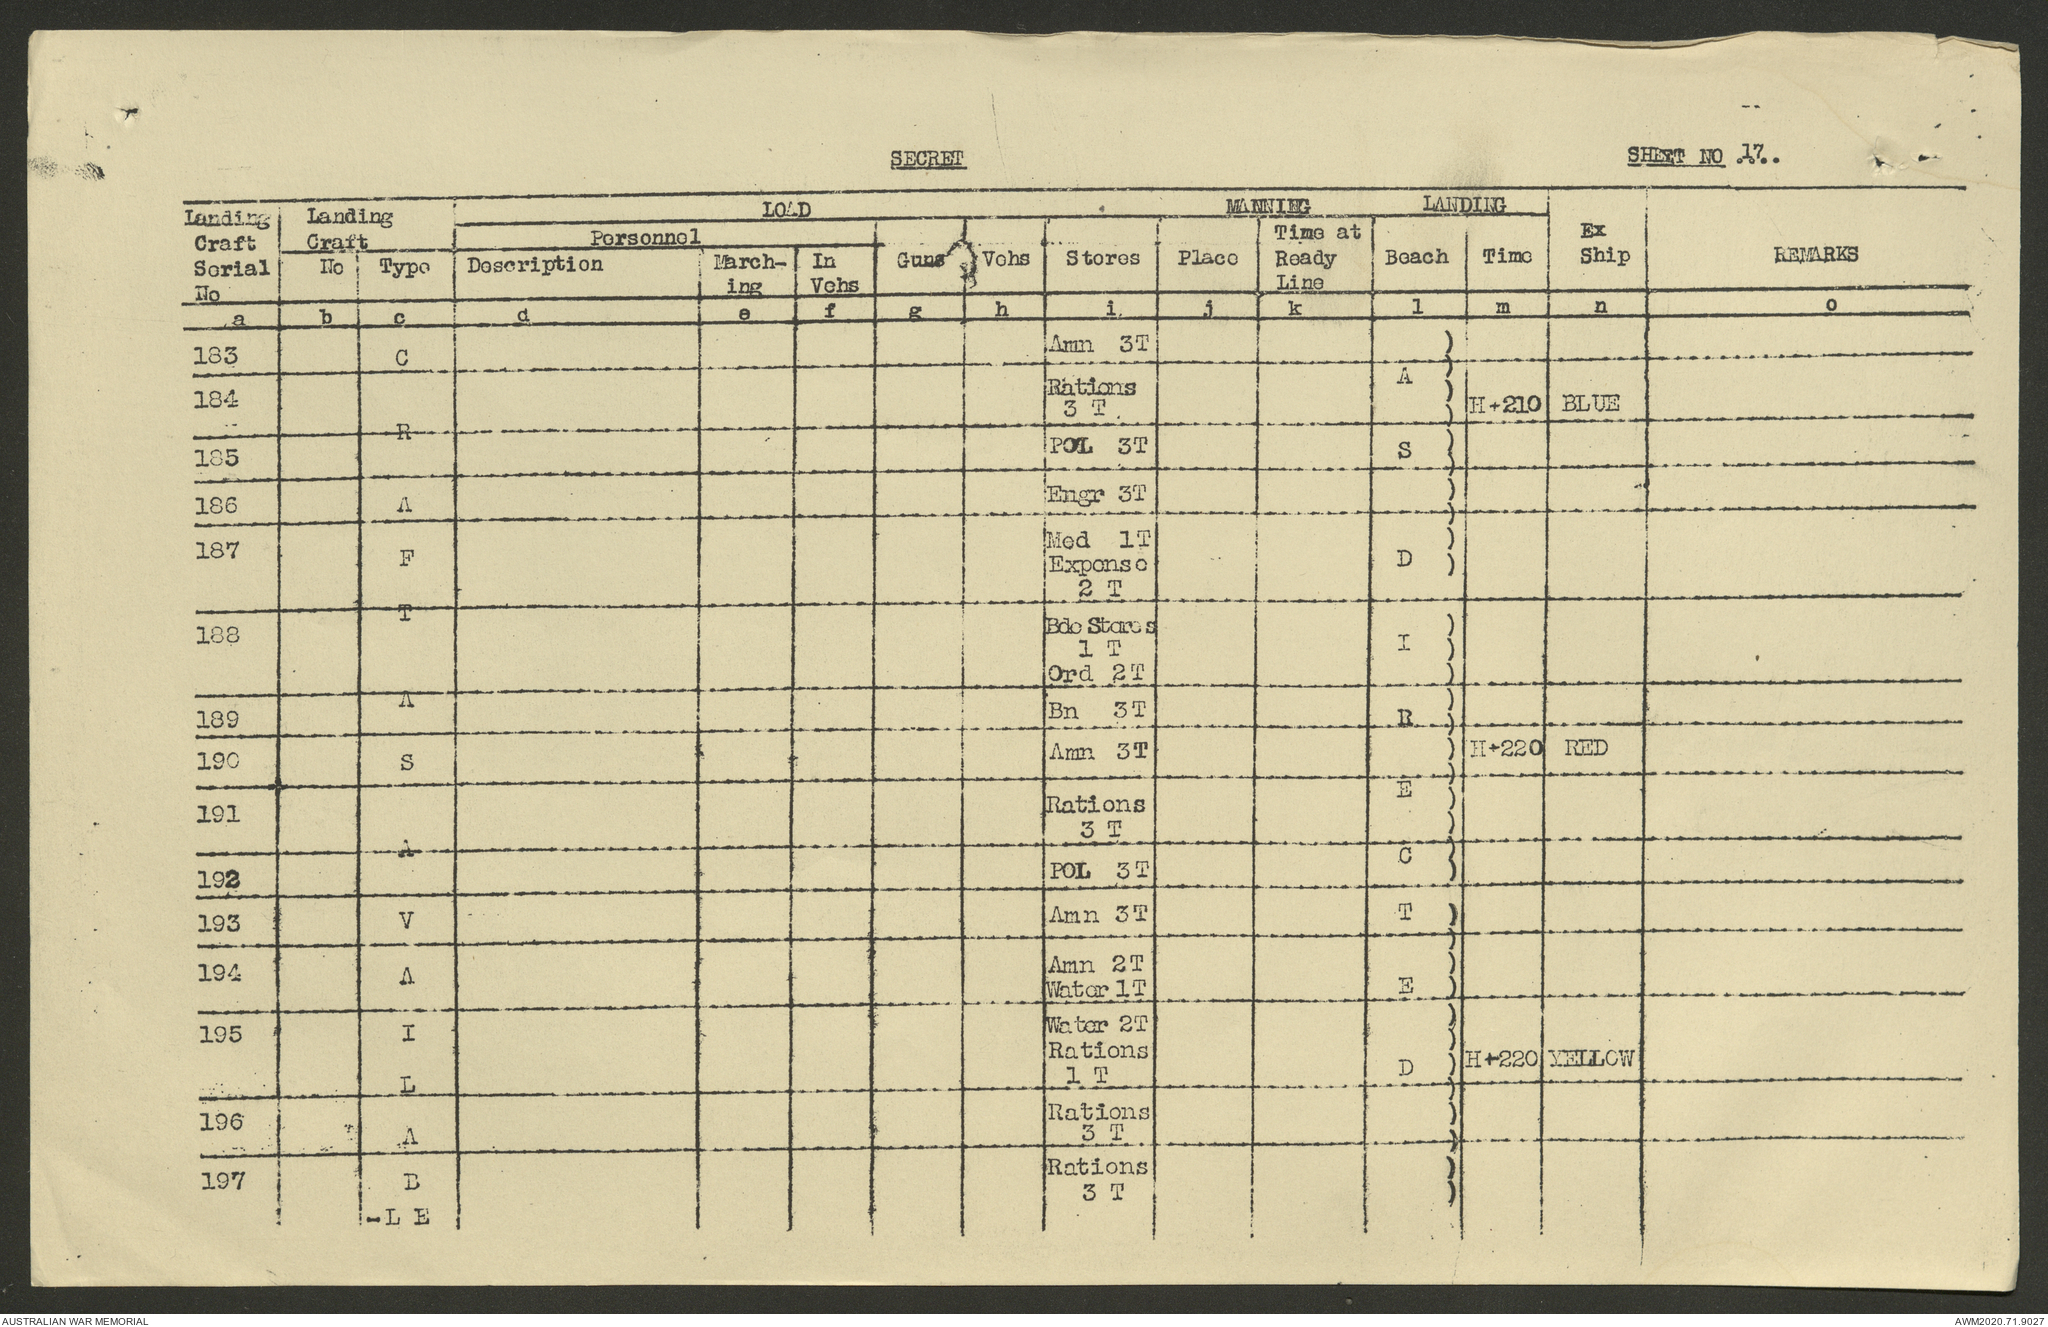 SECRET
SHEET NO 17..
LOAD MANNING LANDING
Landing Craft Serial No
Landing Craft
No Type
Personnel
Description March-ing In Vehs
Guns Vehs Stores Place Time at Ready Line Beach Time Ex Ship REMARKS
a b c d e f g h i j k l m n o
183 C Amn 3T
A
184 Rations
3 T H+210 BLUE
R
185 POL 3T S
186 A Engr 3T
187 F Med 1T D
Expense
2 T
T
188 Bde Stores
1 T I
Ord 2T
A
189 Bn 3T R
190 S Amn 3T H+220 RED
E
191 Rations
3 T
A
C
192 POL 3T
193 V Amn 3T T
194 A Amn 2T
Water 1T E
195 I Water 2T
Rations
1 T D H+220 YELLOW
L
196 Rations
A 3 T
197 B Rations
3 T
-L E
AUSTRALIAN WAR MEMORIAL
AWM2020.71.9027